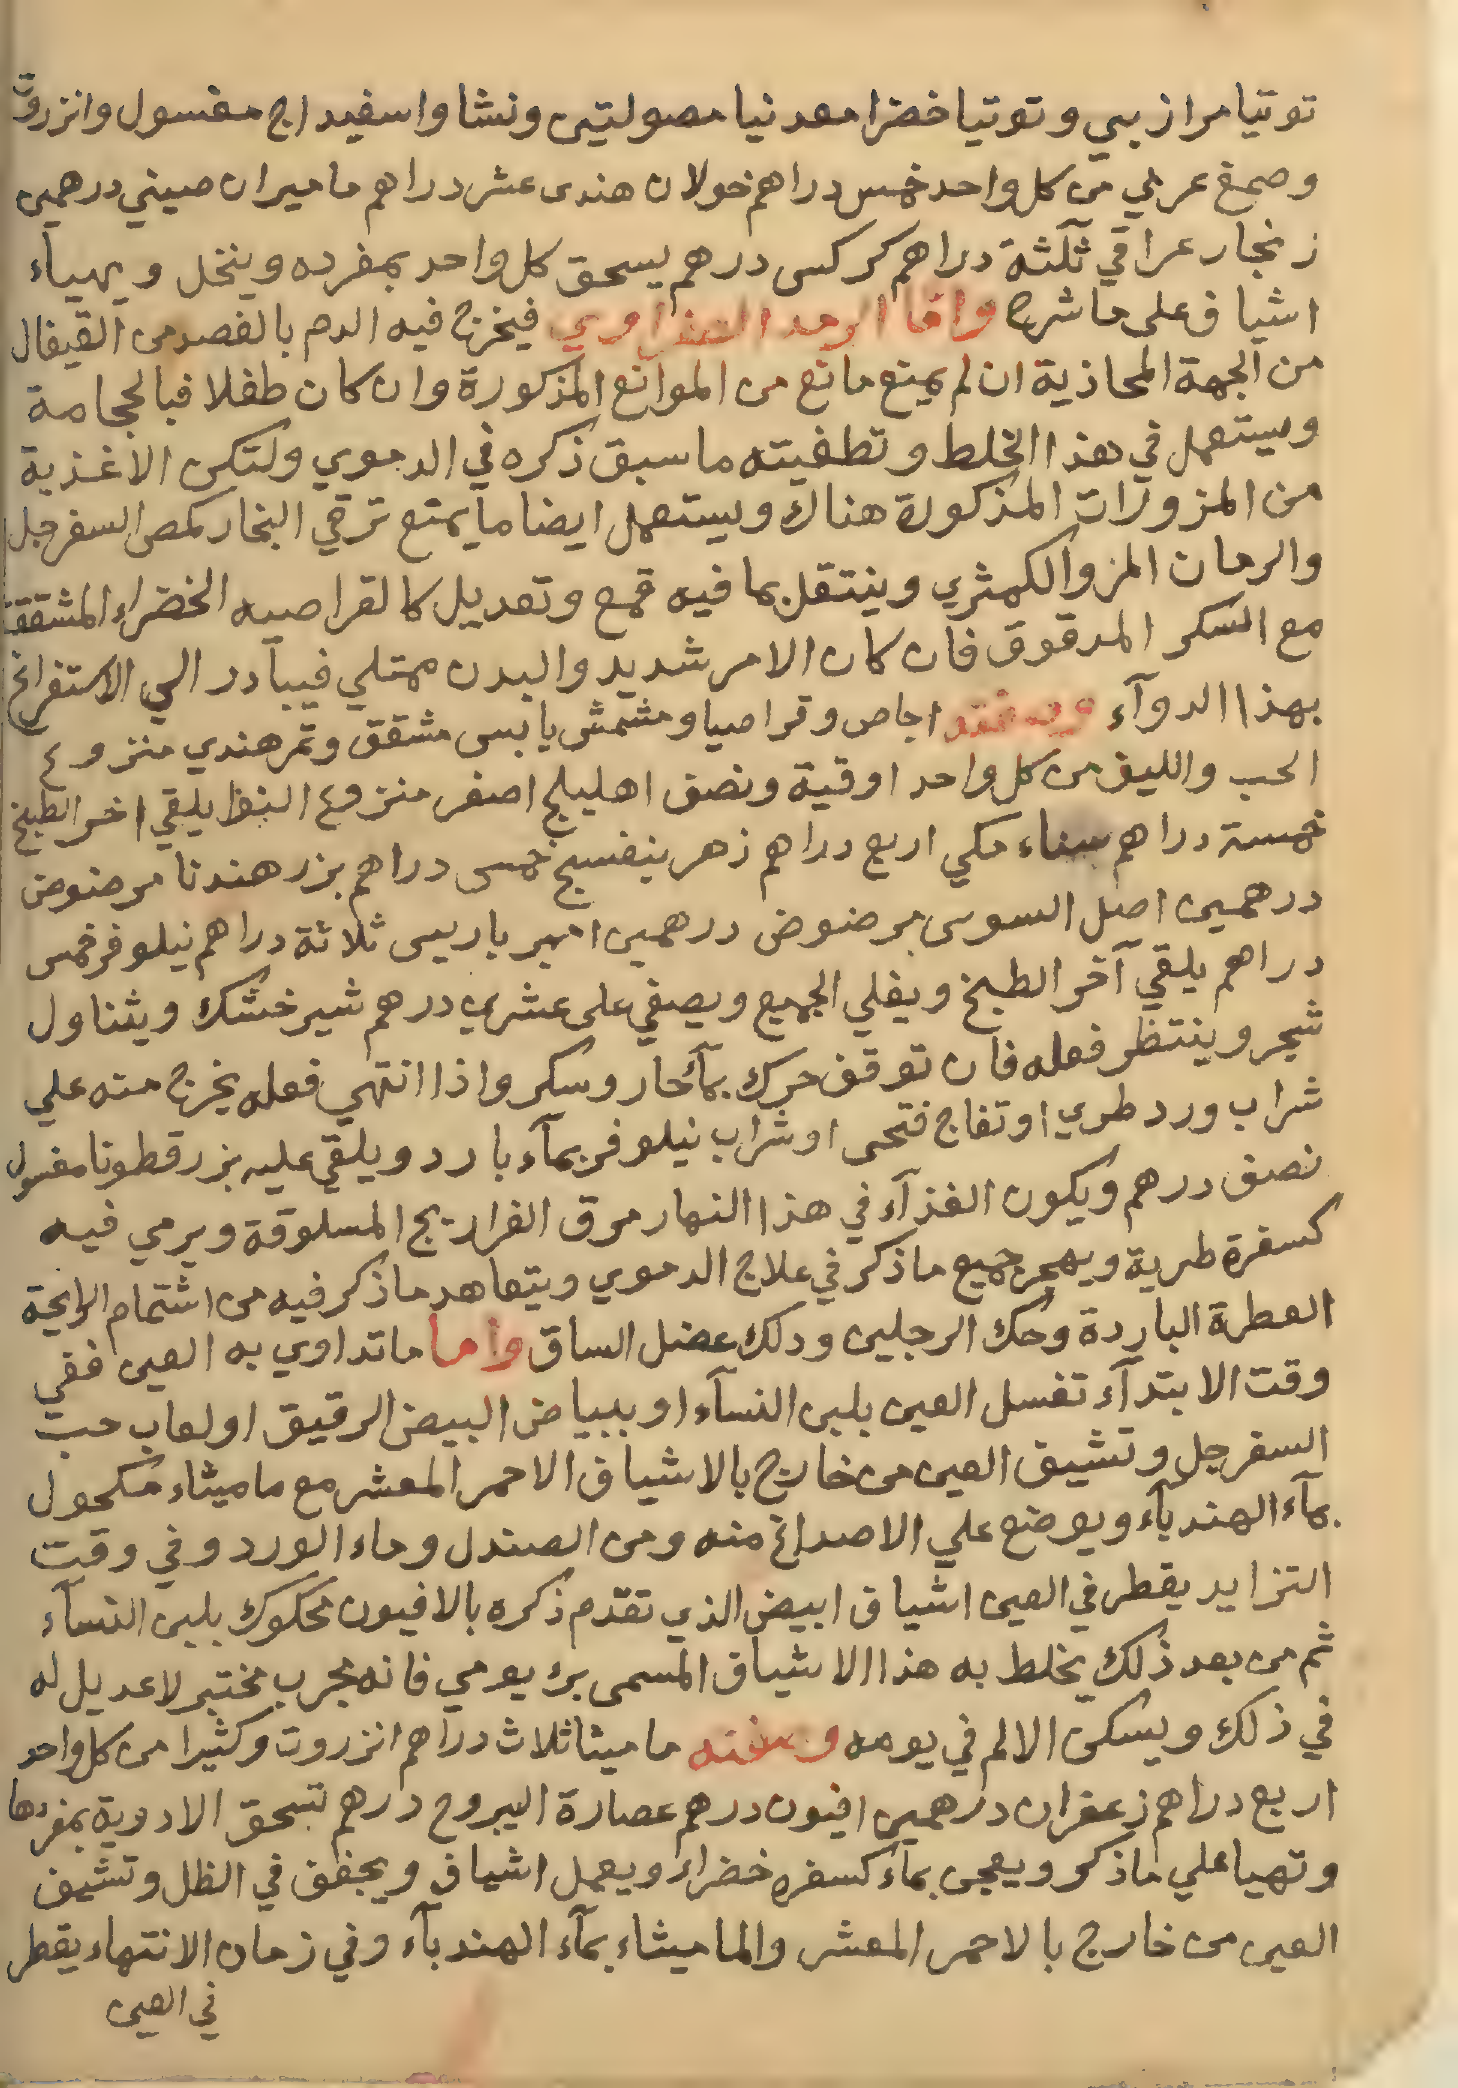 توتيا مرازبي وتوتيا خضرا معدنيا مصولتين ونشا واسفيداج مغسول وانزروت
وصمغ عربي من كل واحد خمس دراهم خولان هندى عشر دراهم ماميران صيني درهمين
زنجار عراقي ثلثة دراهم كركس درهم يسحق كل واحد بمفرده وينخل ويهياء
اشياف على ما شرح واما الرمد الصفراوي فيخرج فيه الدم بالفصد من القيفال
من الجهة المحاذية ان لم يمنع مانع من الموانع المذكورة وان كان طفلا فبالحجامة
ويستعمل في هذا الخلط وتطفيته ما سبق ذكره في الدموي ولتكن الاغذية
من المزورات المذكورة هناك ويستعمل ايضا ما يمنع ترقي البخار كمص السفرجل
والرمان المز والكمثري وينتقل بما فيه قمع وتعديل كالقراصيه الخضراء المشققة
مع السكر المدقوق فان كان الامر شديد والبدن ممتلي فيبادر الي الاستفراغ
بهذا الدوآء وصفته اجاص وقراصيا ومشمش يابس مشقق وتمرهندي منزوع
الحب والليف من كل واحد اوقية ونصف اهليلج اصفر منزوع النوا يلقي اخر الطبخ
خمسة دراهم سناء مكي اربع دراهم زهر بنفسج خمس دراهم بزر هندبا مرضوض
درهمين اصل السوس مرضوض درهمين امير باريس ثلاثة دراهم نيلوفر خمس
دراهم يلقي آخر الطبخ ويغلي الجميع ويصفي على عشرين درهم شيرخشك ويتناول
شجر وينتظر فعله فان توقف حرك بمآء حار وسكر واذا انتهي فعله يخرج منه علي
شراب ورد طري او تفاح فتحى او شراب نيلوفر بمآء بارد ويلقي عليه بزرقطونا مغسول
نصف درهم ويكون الغذآء في هذا النهار مرق الفراريج المسلوقة ويرمي فيه
كسفرة طرية ويهجر جميع ما ذكر في علاج الدموي ويتعاهد ما ذكر فيه من اشتمام الرايحة
العطرة الباردة وحك الرجلين ودلك عضل الساق واما ما تداوي به العين ففي
وقت الابتدآء تغسل العين بلبن النسآء او ببياض البيض الرقيق او لعاب حب
السفرجل وتشيف العين من خارج بالاشياف الاحمر المعشر مع ماميثاء مكحول
بمآء الهندبآء ويوضع علي الاصداغ منه ومن الصندل وماء الورد وفي وقت
التزايد يقطر في العين اشياف ابيض الذي تقدم ذكره بالافيون محكوك بلبن النسآء
ثم من بعد ذلك يخلط به هذا الاشياف المسمى برء يومي فانه مجرب مختبر لا عديل له
في ذلك ويسكن الالم في يومه وصفته ماميثا ثلاث دراهم انزروت وكثيرا من كل واحد
اربع دراهم زعفران درهمين افيون درهم عصارة اليبروح درهم تسحق الادوية بمفردها
وتهيا علي ما ذكر ويعجن بماء كسفره خضراء ويعمل اشياف ويجفف في الظل وتشيف
العين من خارج بالاحمر المعشر والماميثاء بمآء الهندبآء وفي زمان الانتهاء يقطر
في العين